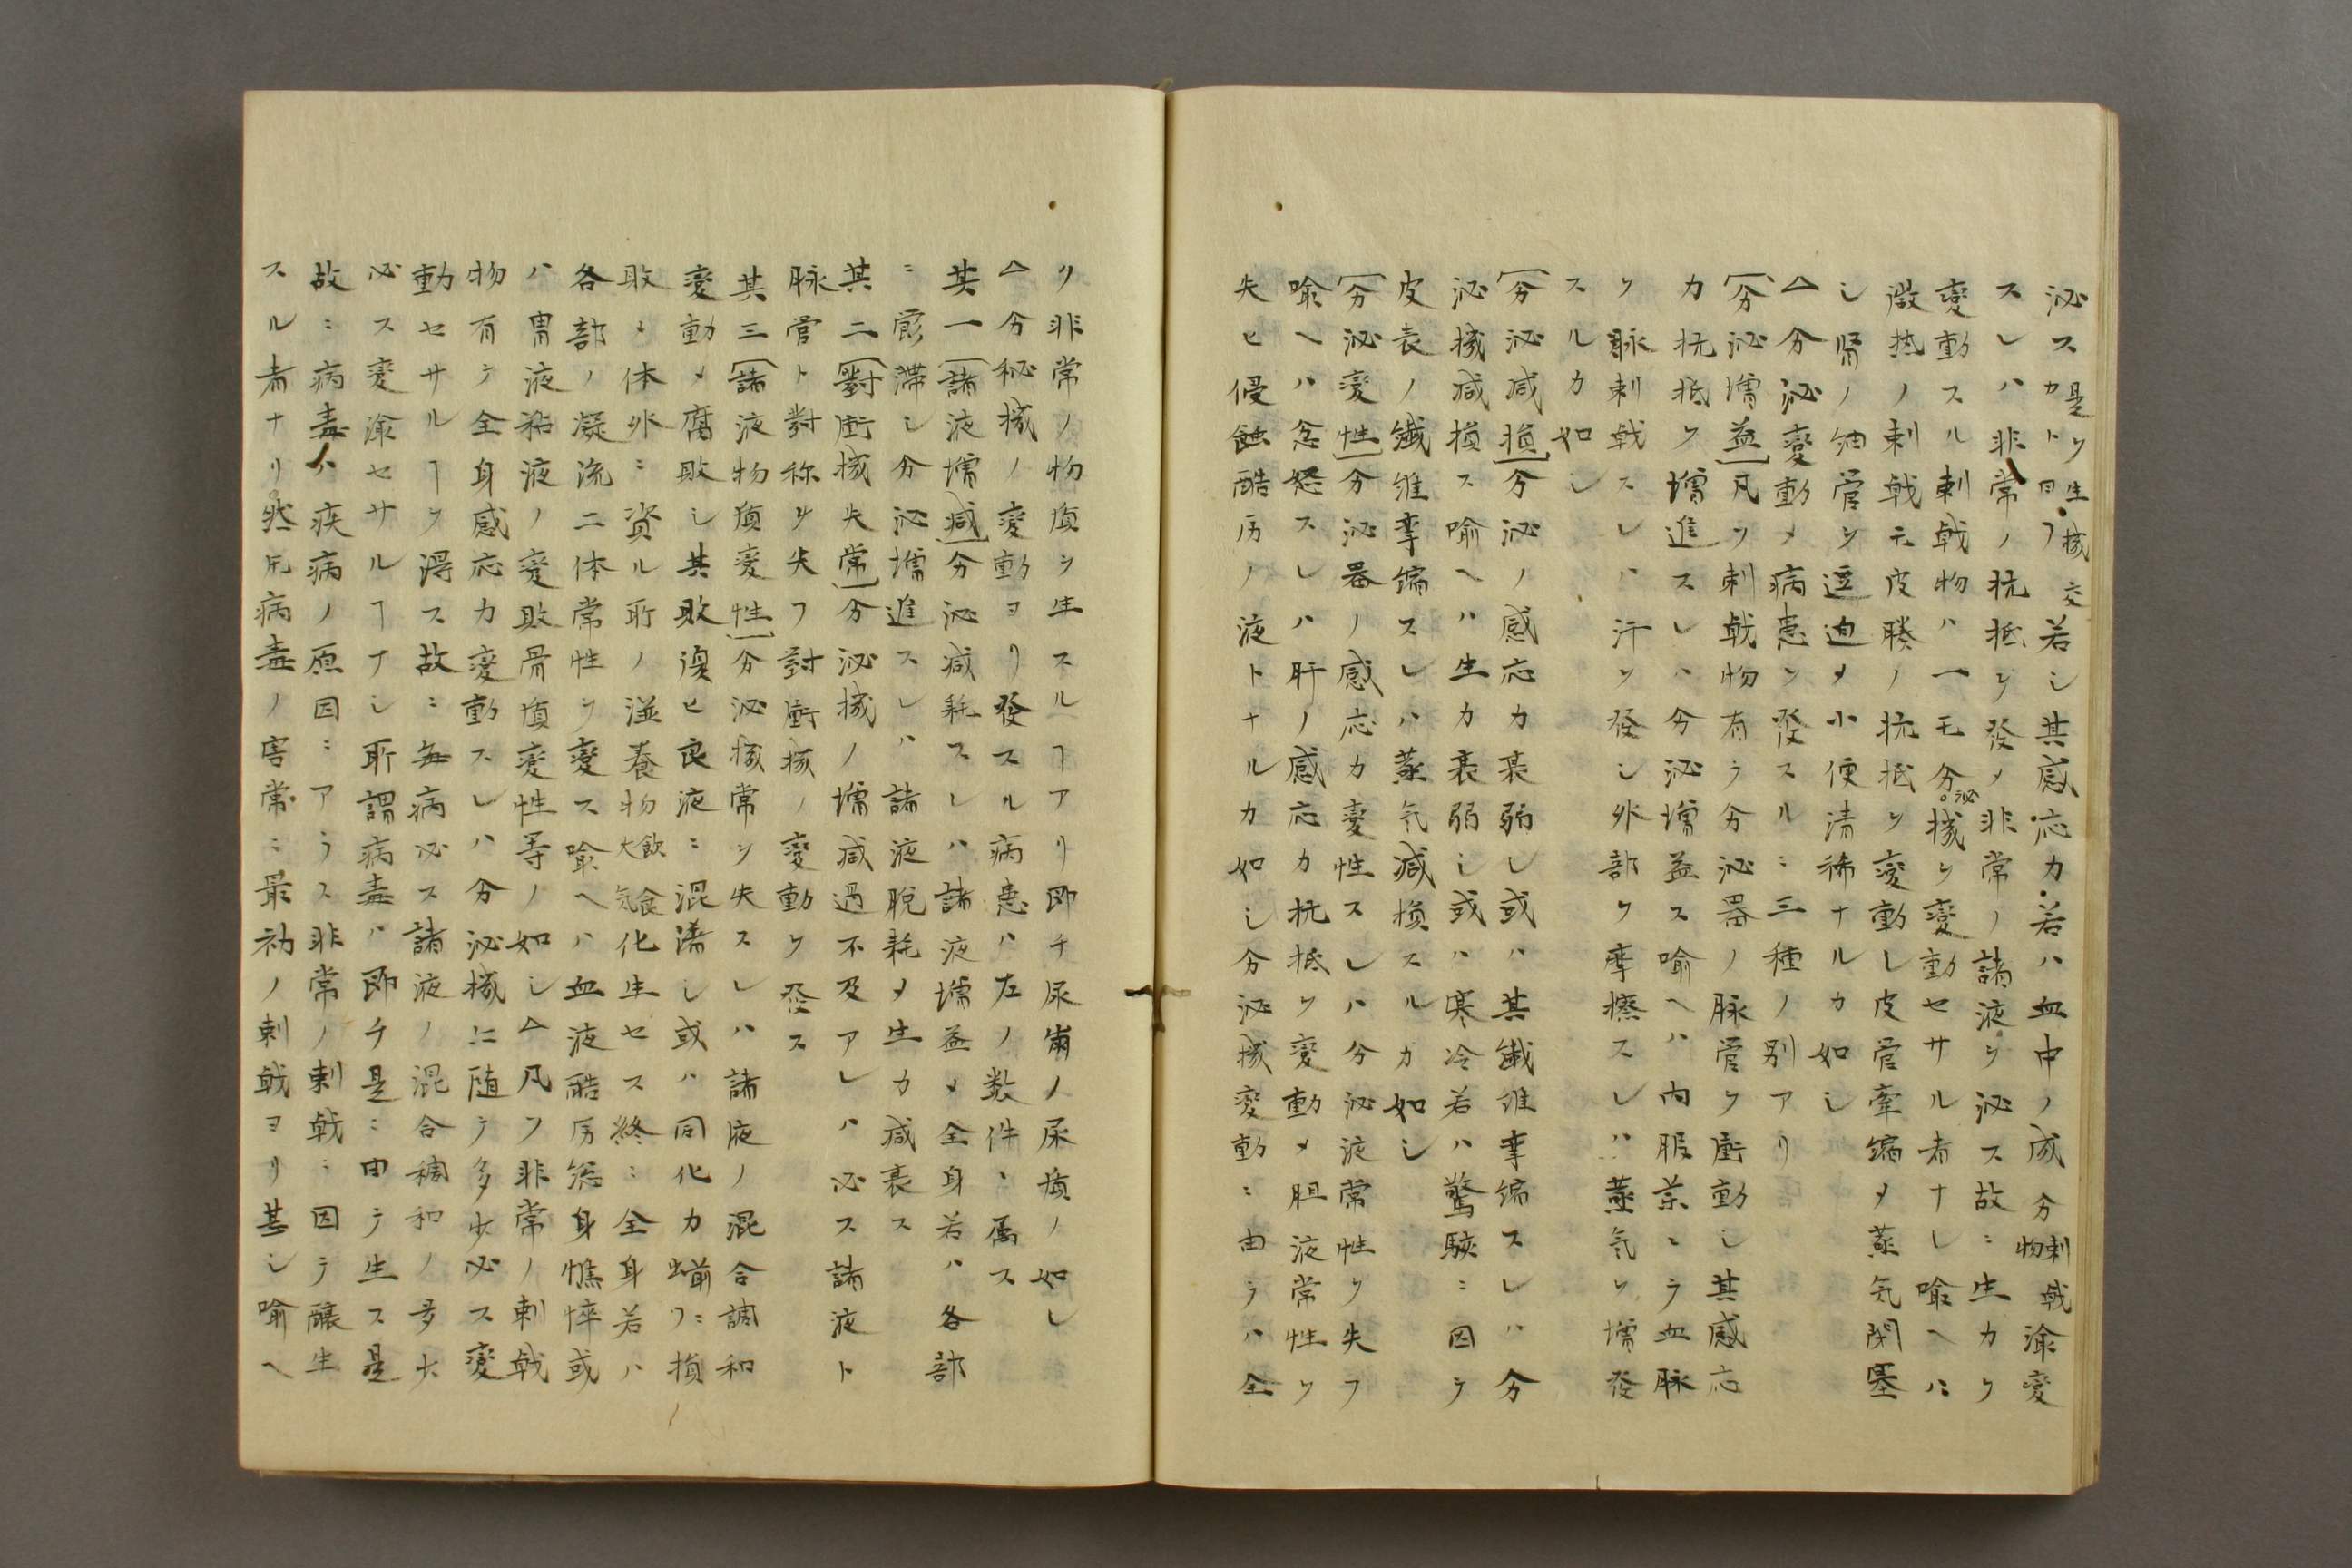 泌スカ是トリ曰生フ機交若シ其感応カ若ハ血中ノ成分刺戟物渝変
スレハ非常ノ抗抵ヲ發メ非常ノ諸液ヲ泌ス故ニ生カヲ
変動スル刺戟物ハ一モ分泌機ヲ変動セサル者ナシ喩ヘハ
激熱ノ刺戟モ皮膚ノ抗抵ヲ変動シ皮管牽縮メ蒸気閉塞
シ腎ノ細管ヲ逼迫メ小便清稀ナルカ如シ
△分泌変動メ病患ヲ發スルニ三種ノ別アリ
分泌増益凡ソ刺戟物有テ分泌器ノ脉管ヲ衝動シ其感応
カ抗抵ヲ増進スレハ分泌増益ス喩ヘハ内服薬ニテ血脉
ヲ刺戟スレハ汗ヲ發シ外部ヲ摩擦スレハ蒸気ヲ増發
スルカ如シ
分泌減損分泌ノ感応カ衰弱シ或ハ其繊維牽縮スレハ分
泌機減損ス喩ヘハ生カ衰弱シ或ハ寒冷若ハ驚駭ニ因テ
皮表ノ繊維牽縮スレハ蒸気減損スルカ如シ
分泌変性分泌器ノ感応カ変性スレハ分泌液常性ヲ失フ
喩ヘハ忿怒スレハ肝ノ感応カ抗抵ヲ変動メ胆液常性ヲ
失ヒ侵蝕酷厉ノ液トナルカ如シ分泌機変動ニ由テハ全
ク非常ノ物質ヲ生スルヿアリ即チ尿崩ノ尿質ノ如シ
△分秘機ノ変動ヨリ發スル病患ハ左ノ数件ニ属ス
其一諸液増減分泌減耗スレハ諸液増益メ全身若ハ各部
ニ鬱滞シ分泌増進スレハ諸液脱耗メ生カ減衰ス
其二對衝機失常分泌機ノ増減過不及アレハ必ス諸液ト
脉管ト對称ヲ失フ對衝機ノ変動ヲ發ス
其三諸液物質変性分泌機常ヲ失スレハ諸液ノ混合調和
変動メ腐敗シ其敗液ヒ良液ニ混淆シ或ハ同化カ為ニ損
敗メ体外ニ資ル所ノ滋養物飲食大気化生セス終ニ全身若ハ
各部ノ凝流二体常性ヲ変ス喩ヘハ血液酷厉為身憔悴或
ハ胃液粘液ノ変敗骨質変性等ノ如シ△凡ソ非常ノ刺戟
物有テ全身感応カ変動スレハ分泌機ニ随テ多少必ス変
動セサルヿヲ得ス故ニ毎病必ス諸液ノ混合稠和ノ多少
必ス変渝セサルヿナシ所謂病毒ハ即チ是ニ由テ生ス是
故ニ病毒ハ疾病ノ原因ニアラス非常ノ刺戟ニ因テ醸生
スル者ナリ然圧病毒ノ害常ニ最初ノ刺戟ヨリ甚シ喩ヘ